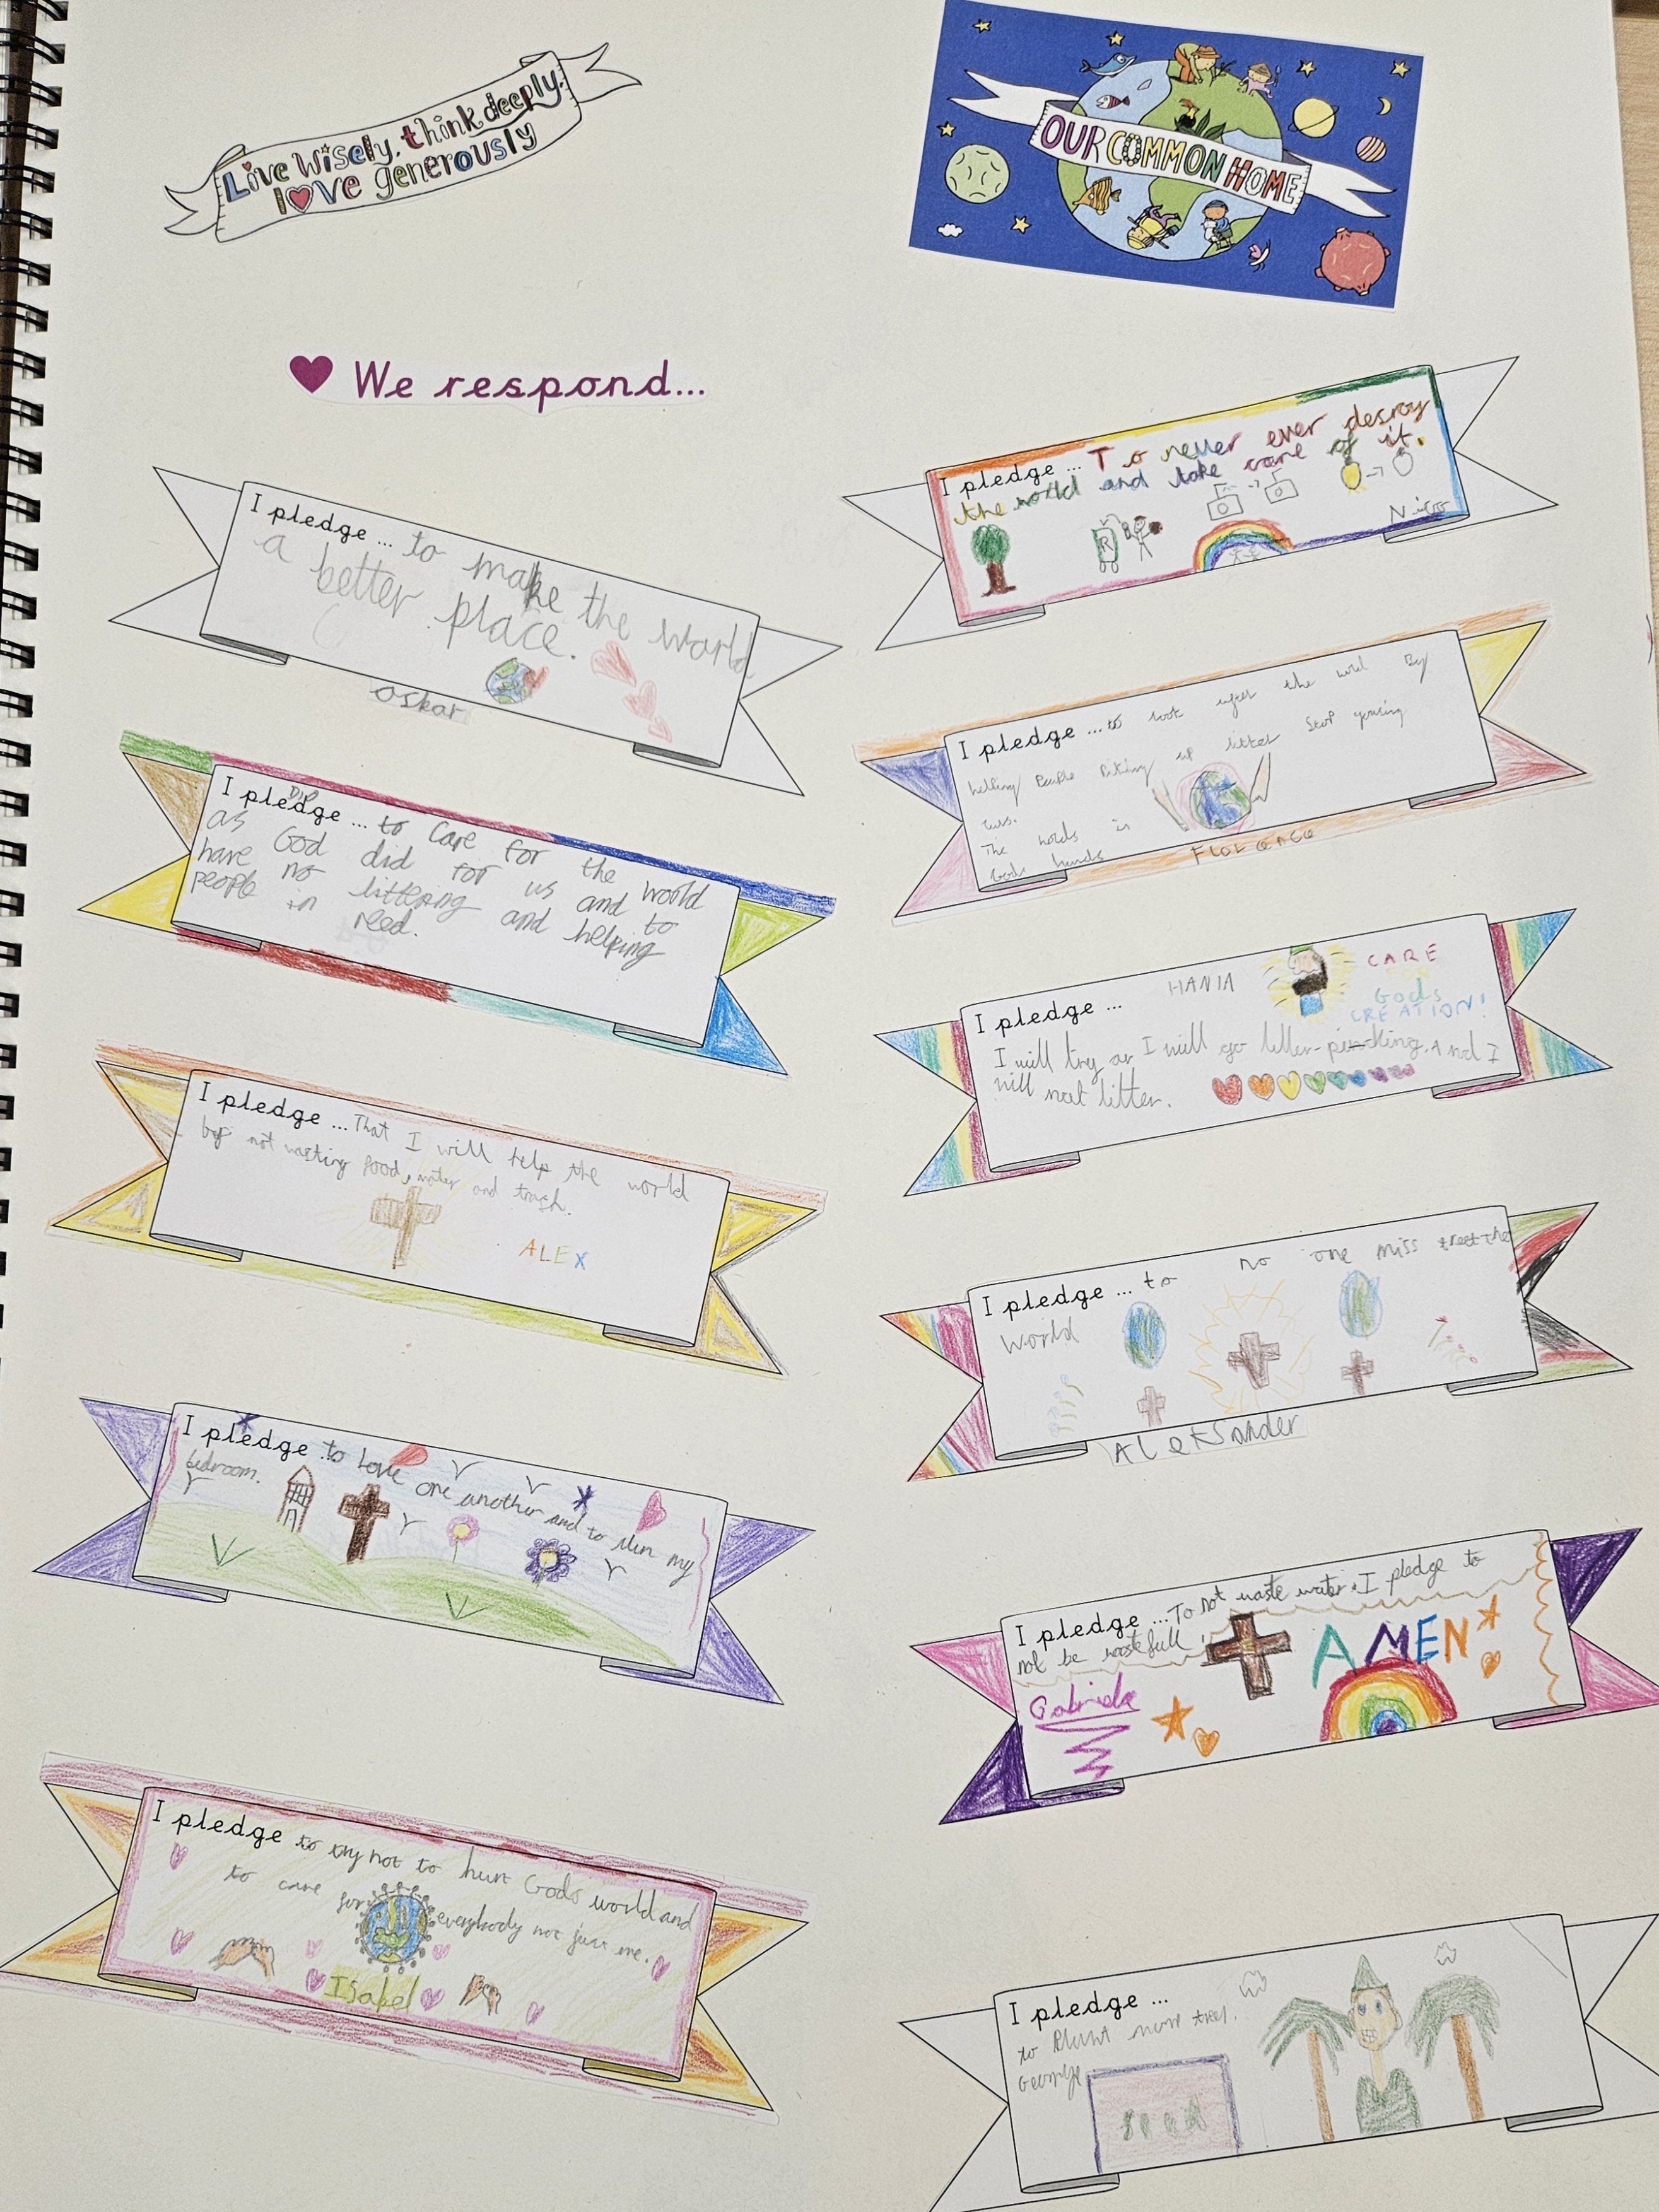 Live Wisely, think deeply,
love generously
OUR COMMON HOME
We respond...
I pledge ... to make the world
a better place.
oskar
I pledge ... to Care for the world
as God did for us and to
have no littering and helping
people in need.
I pledge ... That I will help the world
by not wasting food, water and trash.
ALEX
I pledge to Love one another and to my
bedroom.
I pledge to try not to hurt Gods world and
to care for everybody not just me.
Isabel
I pledge ... To never ever desroy
the world and take care of it.
R
Nico
I pledge ... to look after the By
up litter Stop
The in
Gods hands
Florence
HANIA
CARE
Gods
CREATION!
I pledge ...
I will try or I will go litter-picking. And I
will not litter.
I pledge ... to no one miss treet the
World
Aleksander
I pledge ... To not waste water. I pledge to
not be wastefull
AMEN
Gabriela
I pledge ...
to Plant more trees.
George
seed